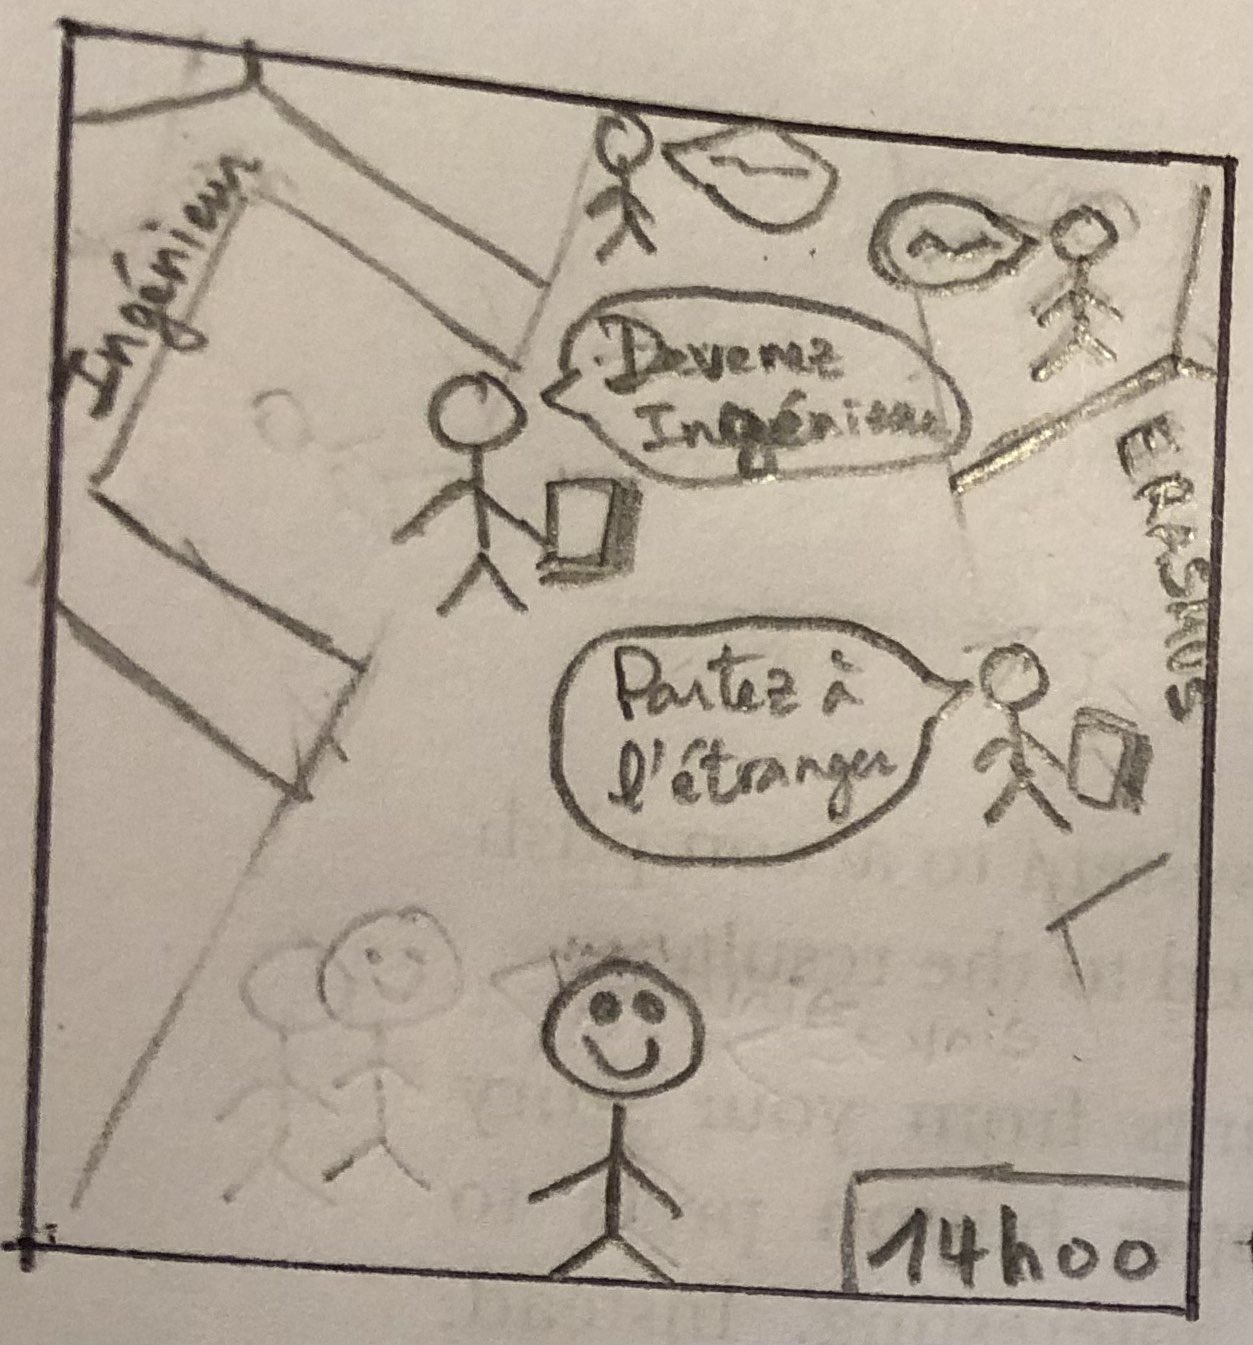 Ingénieur
Devenez
Ingénieur
ERASMUS
Partez à
l'étranger
14h00